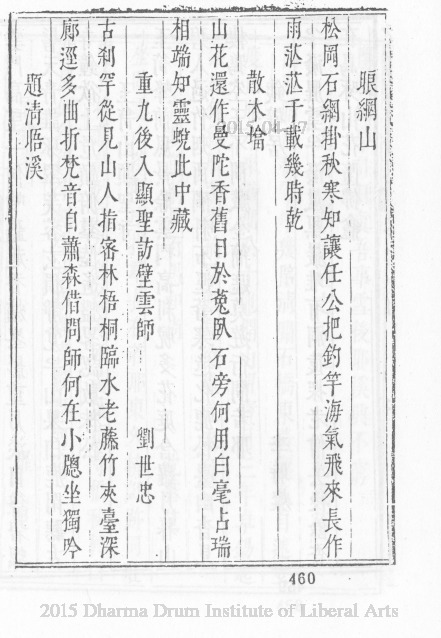 眼網山
松岡石網掛秋寒知讓任公把釣竿海氣飛來長作
雨沵沵千載幾時乾
散木墖
山花還作曼陀香舊日於菟臥石旁何用白毫占瑞
相端知靈蛻此中藏
重九後入顯聖訪壁雲師 劉世忠
古刹罕從見山人指密林梧桐臨水老藤竹夾臺深
廊逕多曲折梵音自蕭森借問師何在小牕坐獨吟
題清晤溪
460
2015 Dharma Drum Institute of Liberal Arts